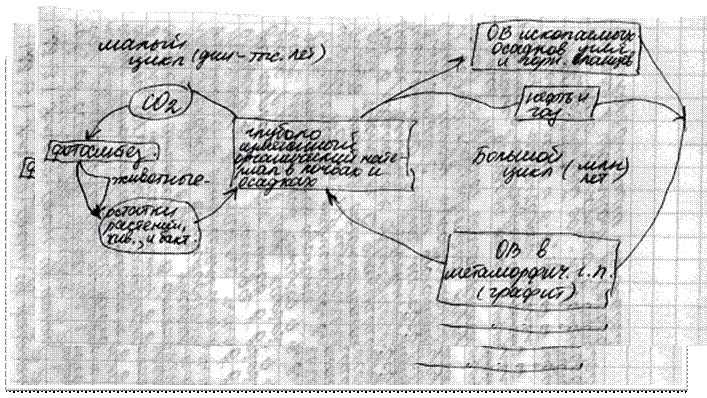 малый
цикл (дни - тыс. лет)
CO2
фотосинтез.
животные.
остатки
растений,
жив., и бакт.
глубоко
измененный
органический мате-
риал в почвах и
осадках
ОВ ископаемых
осадков
и
нефть и
газ.
Большой
цикл (млн
лет)
ОВ в
метаморфич. г.п.
(графит)